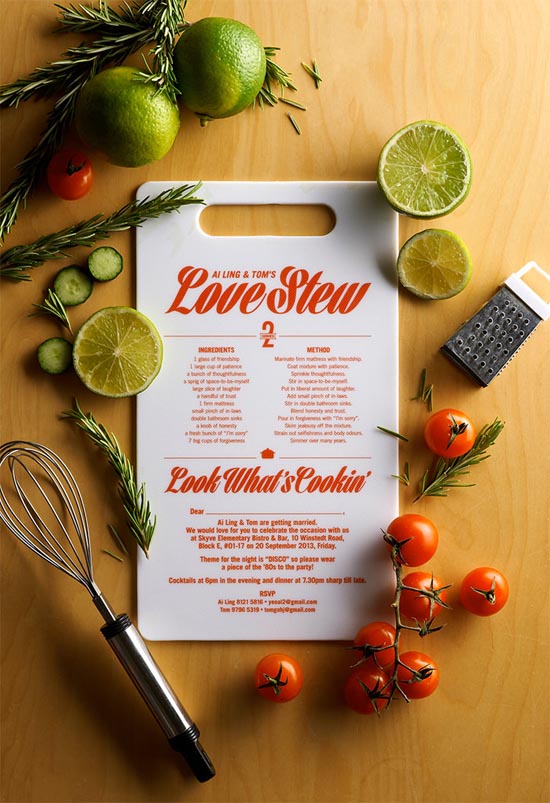 AI LING & TOM'S
Love Stew
2
INGREDIENTS
1 glass of friendship
1 large cup of patience
a bunch of thoughtfulness
a sprig of space-to-be-myself
large slice of laughter
a handful of trust
1 firm mattress
small pinch of in-laws
double bathroom sinks
a knob of honesty
a fresh bunch of "I'm sorry"
7 big cups of forgiveness
METHOD
Marinate firm mattress with friendship.
Coat mixture with patience.
Sprinkle thoughtfulness.
Stir in space-to-be-myself.
Put in liberal amount of laughter.
Add small pinch of in-laws.
Stir in double bathroom sinks.
Blend honesty and trust.
Pour in forgiveness with "I'm sorry".
Skim jealousy off the mixture.
Strain out selfishness and body odours.
Simmer over many years.
Look What's Cookin'
Dear
Ai Ling & Tom are getting married.
We would love for you to celebrate the occasion with us
at Skyve Elementary Bistro & Bar, 10 Winstedt Road,
Block E, #01-17 on 20 September 2013, Friday.
Theme for the night is "DISCO" so please wear
a piece of the '80s to the party!
Cocktails at 6pm in the evening and dinner at 7.30pm sharp till late.
RSVP
Ai Ling 8121 5816 • yeoal2@gmail.com
Tom 9796 5319 • tomgohj@gmail.com